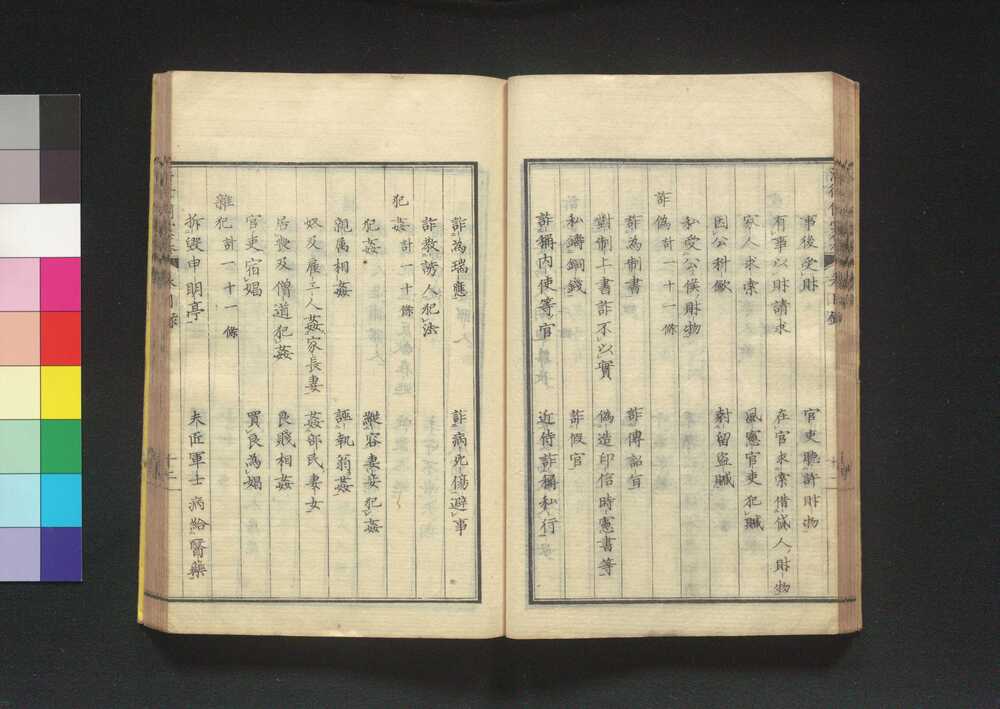 事後受財 官吏聽許財物
有事以財請求 在官求索借貸人財物
家人求索 風憲官吏犯贓
因公科歛 尅留盜贓
私受公侯財物
詐偽計一十一條
詐為制書 詐傳詔旨
對制上書詐不以實 偽造印信時憲書等
私鑄銅錢 詐假官
詐稱內使等官 近侍詐稱私行
詐為瑞應 詐病死傷避事
詐教誘人犯法
犯姦計一十條
犯姦 縱容妻妾犯姦
親属相姦 誣執翁姦
奴及雇工人姦家長妻 姦部民妻女
居喪及僧道犯姦 良賤相姦
官吏宿娼 買良為娼
雜犯計一十一條
拆毀申明亭 夫匠軍士病給醫藥